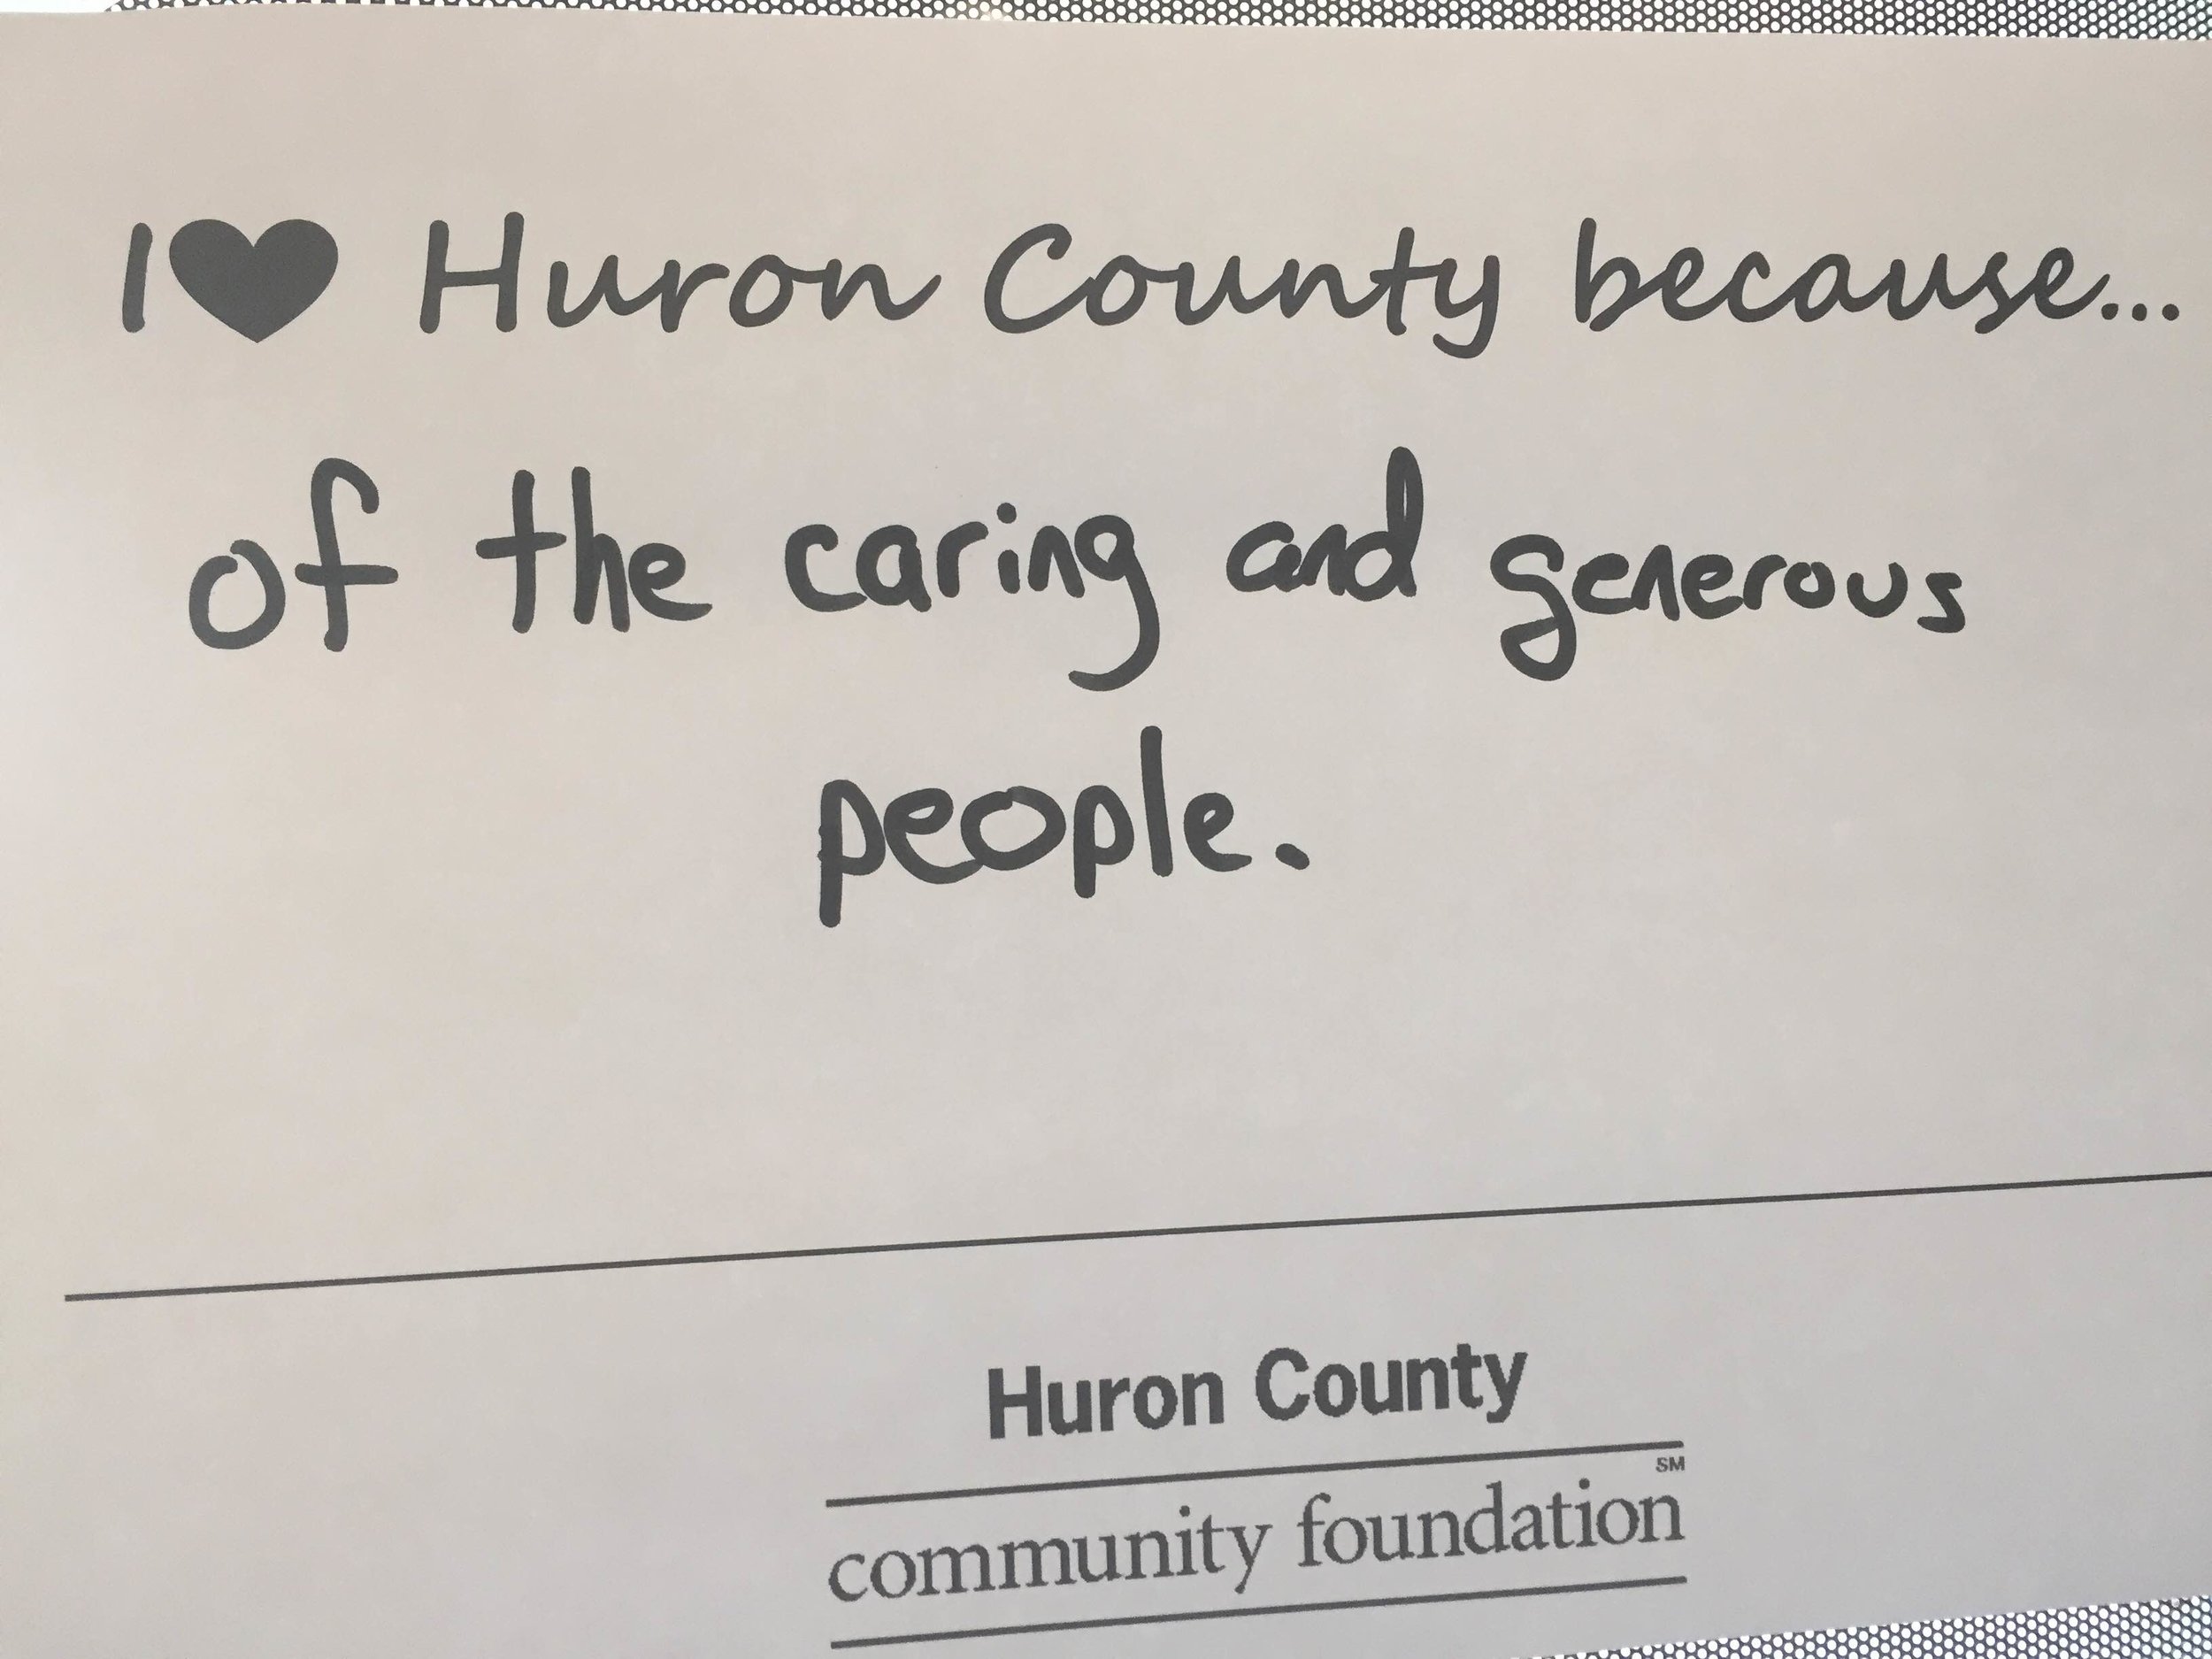 I♥ Huron County because...
of the caring and generous
people.
Huron County
community foundation℠